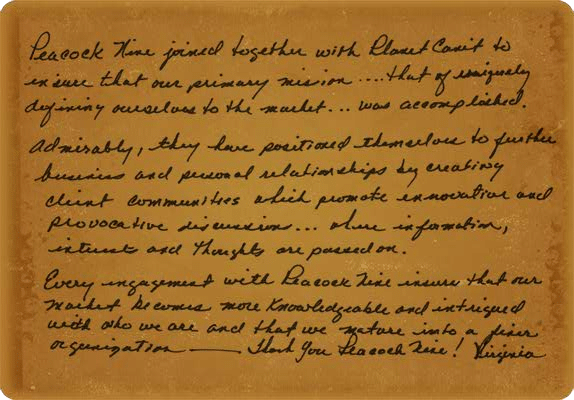 Peacock Nine joined together with Planet Canit to
insure that our primary mission .... that of uniquely
defining ourselves to the market... was accomplished.
Admirably, they have positioned themselves to further
business and personal relationships by creating
client communities which promote innovative and
provocative discussions... where information,
interests and thoughts are passed on.
Every engagement with Peacock Nine insures that our
market becomes more knowledgeable and intrigued
with who we are and that we mature into a finer
organization — Thank You Peacock Nine! Virginia